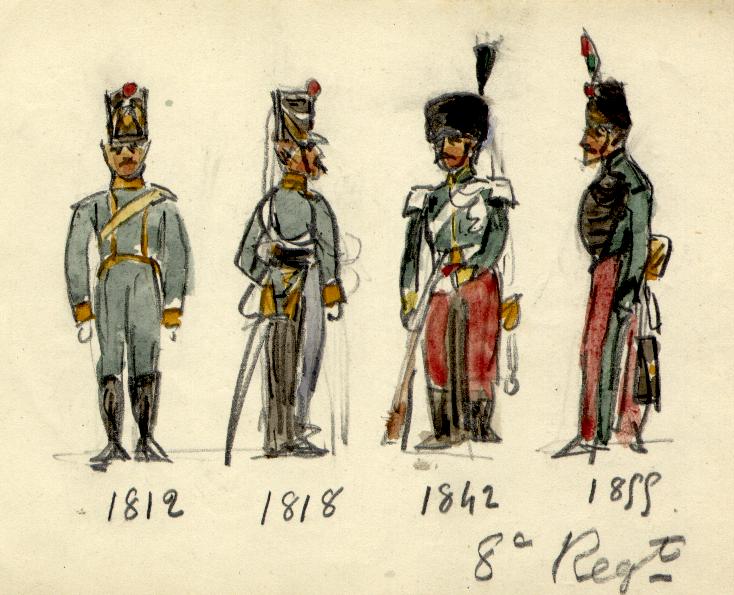 1812 1818 1842 1855.
8ª Regto